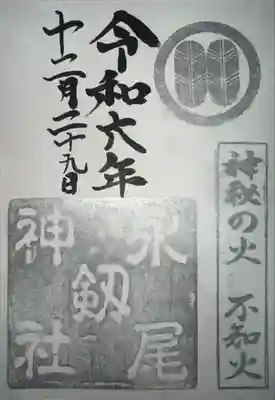 神秘の火 不知火
令和六年
十二月二十九日
永尾
剱
神社